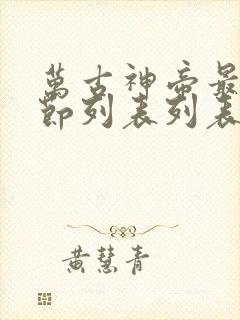 萬古神帝最
節列表列表
黃慧青